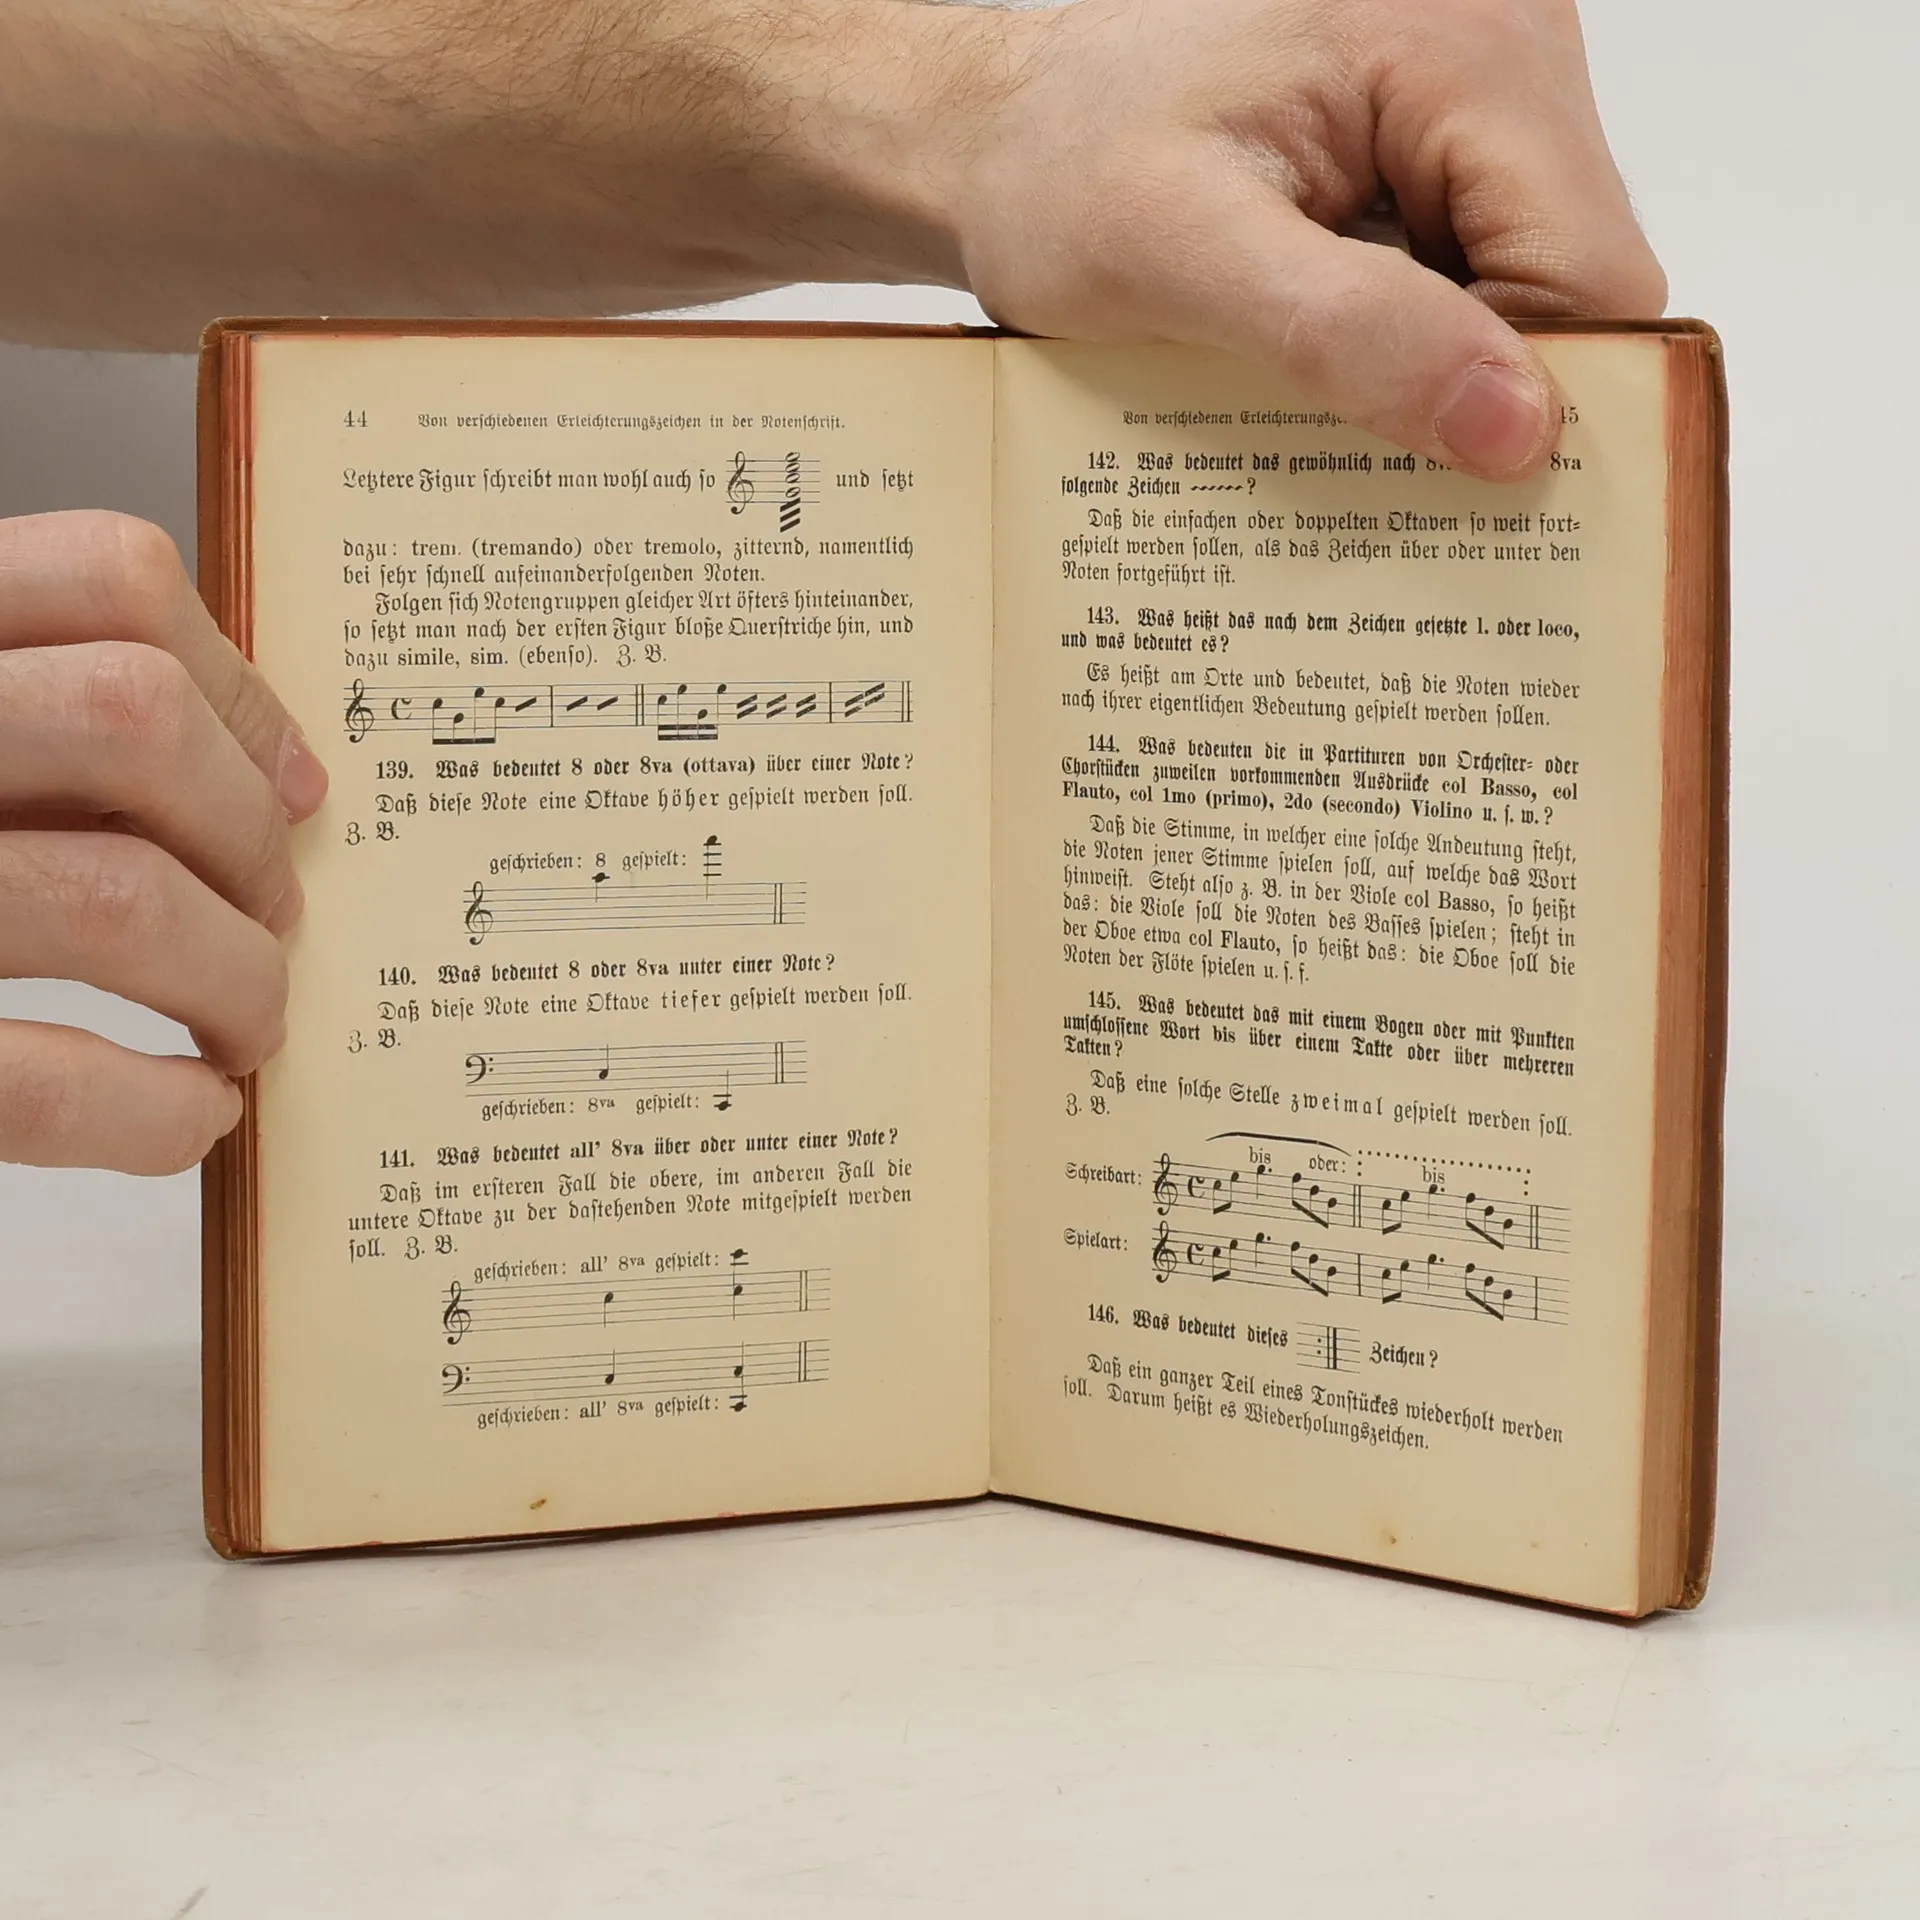 44 Von verschiedenen Erleichterungszeichen in der Notenschrift.
Letztere Figur schreibt man wohl auch so und setzt
dazu: trem. (tremando) oder tremolo, zitternd, namentlich
bei sehr schnell aufeinanderfolgenden Noten.
Folgen sich Notengruppen gleicher Art öfters hinteinander,
so setzt man nach der ersten Figur bloße Querstriche hin, und
dazu simile, sim. (ebenso). Z. B.
139. Was bedeutet 8 oder 8va (ottava) über einer Note?
Daß diese Note eine Oktave höher gespielt werden soll.
Z. B.
geschrieben: 8 gespielt:
140. Was bedeutet 8 oder 8va unter einer Note?
Daß diese Note eine Oktave tiefer gespielt werden soll.
Z. B.
geschrieben: 8va gespielt:
141. Was bedeutet all' 8va über oder unter einer Note?
Daß im ersteren Fall die obere, im anderen Fall die
untere Oktave zu der dastehenden Note mitgespielt werden
soll. Z. B.
geschrieben: all' 8va gespielt:
geschrieben: all' 8va gespielt:
Von verschiedenen
142. Was bedeutet das gewöhnlich nach 8va
folgende Zeichen ~~~~~~?
Daß die einfachen oder doppelten Oktaven so weit fort=
gespielt werden sollen, als das Zeichen über oder unter den
Noten fortgeführt ist.
143. Was heißt das nach dem Zeichen gesetzte l. oder loco,
und was bedeutet es?
Es heißt am Orte und bedeutet, daß die Noten wieder
nach ihrer eigentlichen Bedeutung gespielt werden sollen.
144. Was bedeuten die in Partituren von Orchester= oder
Chorstücken zuweilen vorkommenden Ausdrücke col Basso, col
Flauto, col 1mo (primo), 2do (secondo) Violino u. s. w.?
Daß die Stimme, in welcher eine solche Andeutung steht,
die Noten jener Stimme spielen soll, auf welche das Wort
hinweist. Steht also z. B. in der Viole col Basso, so heißt
das: die Viole soll die Noten des Basses spielen; steht in
der Oboe etwa col Flauto, so heißt das: die Oboe soll die
Noten der Flöte spielen u. s. f.
145. Was bedeutet das mit einem Bogen oder mit Punkten
umschlossene Wort bis über einem Takte oder über mehreren
Takten?
Daß eine solche Stelle zweimal gespielt werden soll.
Z. B.
bis oder: bis
Schreibart:
Spielart:
146. Was bedeutet dieses Zeichen?
Daß ein ganzer Teil eines Tonstückes wiederholt werden
soll. Darum heißt es Wiederholungszeichen.